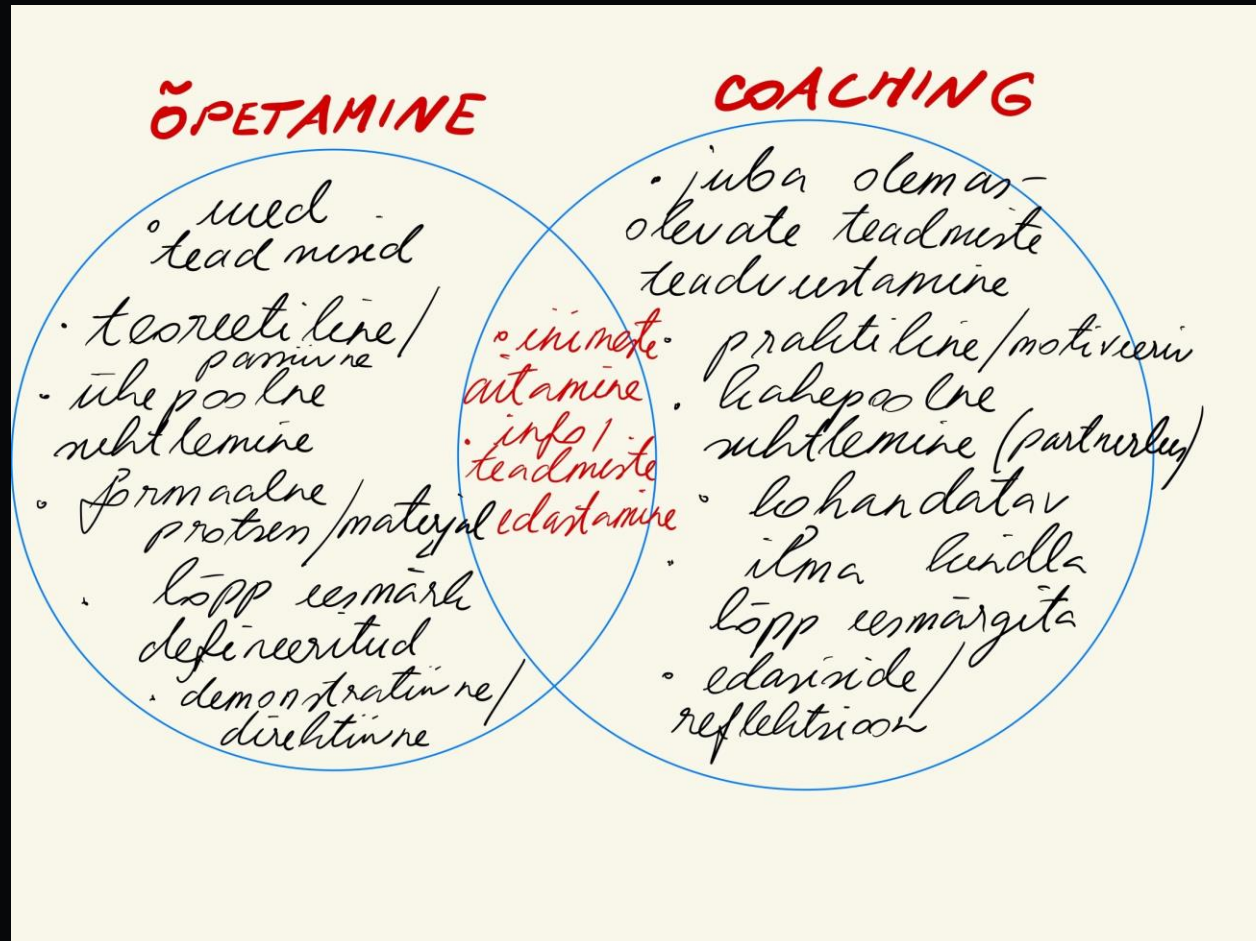 ÕPETAMINE
• uued
teadmised
• teoreetiline/
passiivne
• ühepoolne
suhtlemine
• formaalne
protsess/materjal
• lõpp eesmärk
defineeritud
• demonstratiivne/
direktiivne
• inimeste
aitamine
• info/
teadmiste
edastamine
COACHING
• juba olemas-
olevate teadmiste
teadvustamine
• praktiline/motiveeriv
• kahepoolne
suhtlemine (partnerlus)
• kohandatav
• ilma kindla
lõpp eesmärgita
• edasiside/
reflektsioon